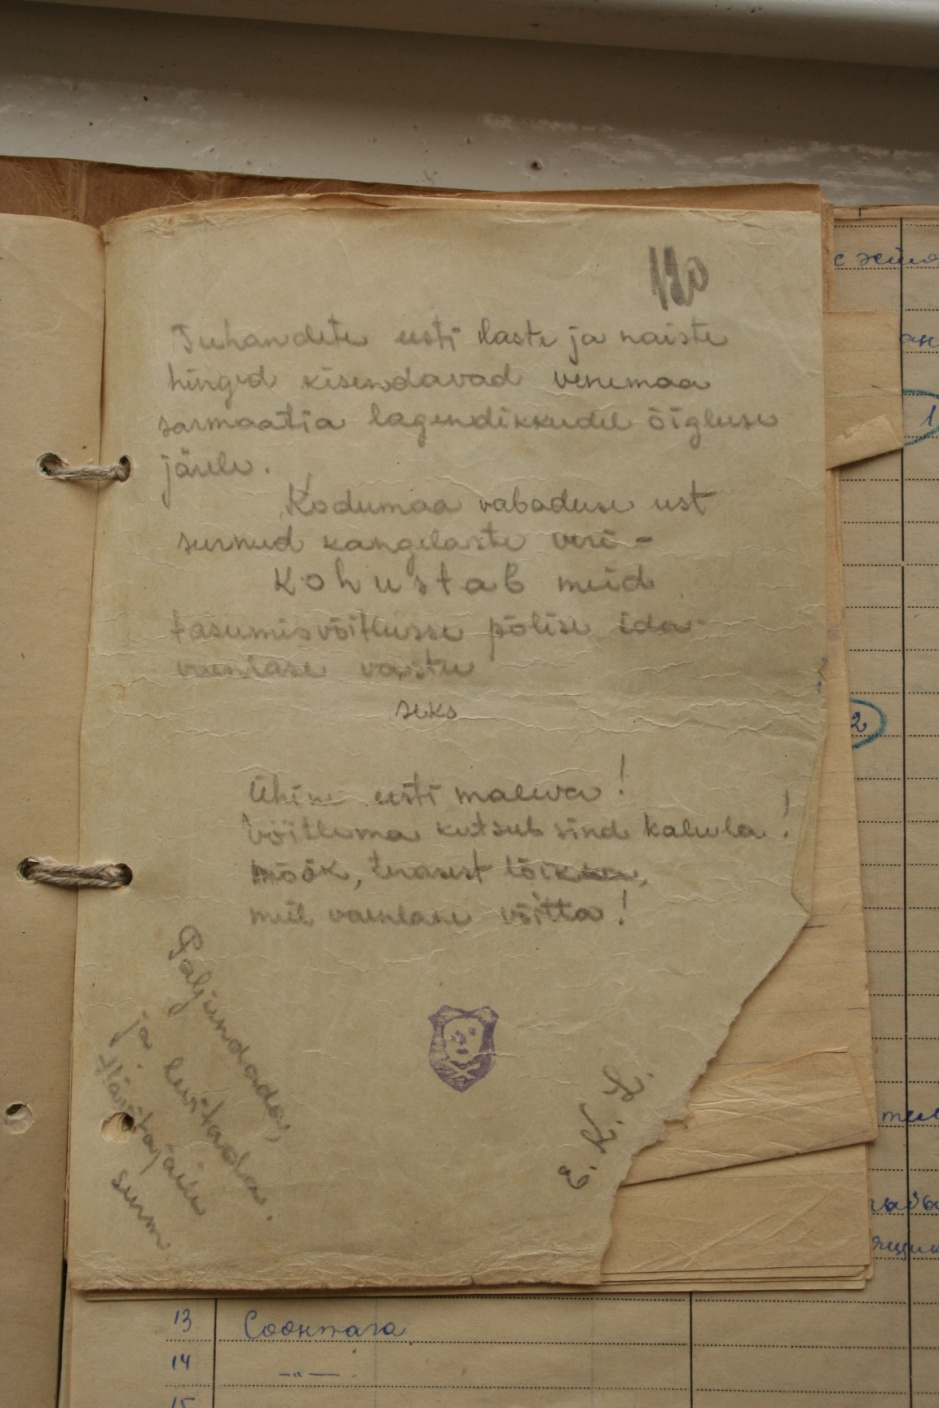 120
Tuhandete eesti laste ja naiste
hinged kisendavad venemaa
sarmaatia lagendikkudel õigluse
järele.
Kodumaa vabaduse eest
surnud kangelaste veri –
Kohustab meid
tasumisvõitlusse põlise ida-
vaenlase vastu
seks
Ühine eesti maleva!
Võitlema kutsub sind kalevla!
Mõõk, terasest
meil vaenlane võitta!
Paljundada,
ja levitada.
Hävitajaile
surm
E. L.
с жити
ан
1
2
тел
13 Соонтага
14 —"—
15